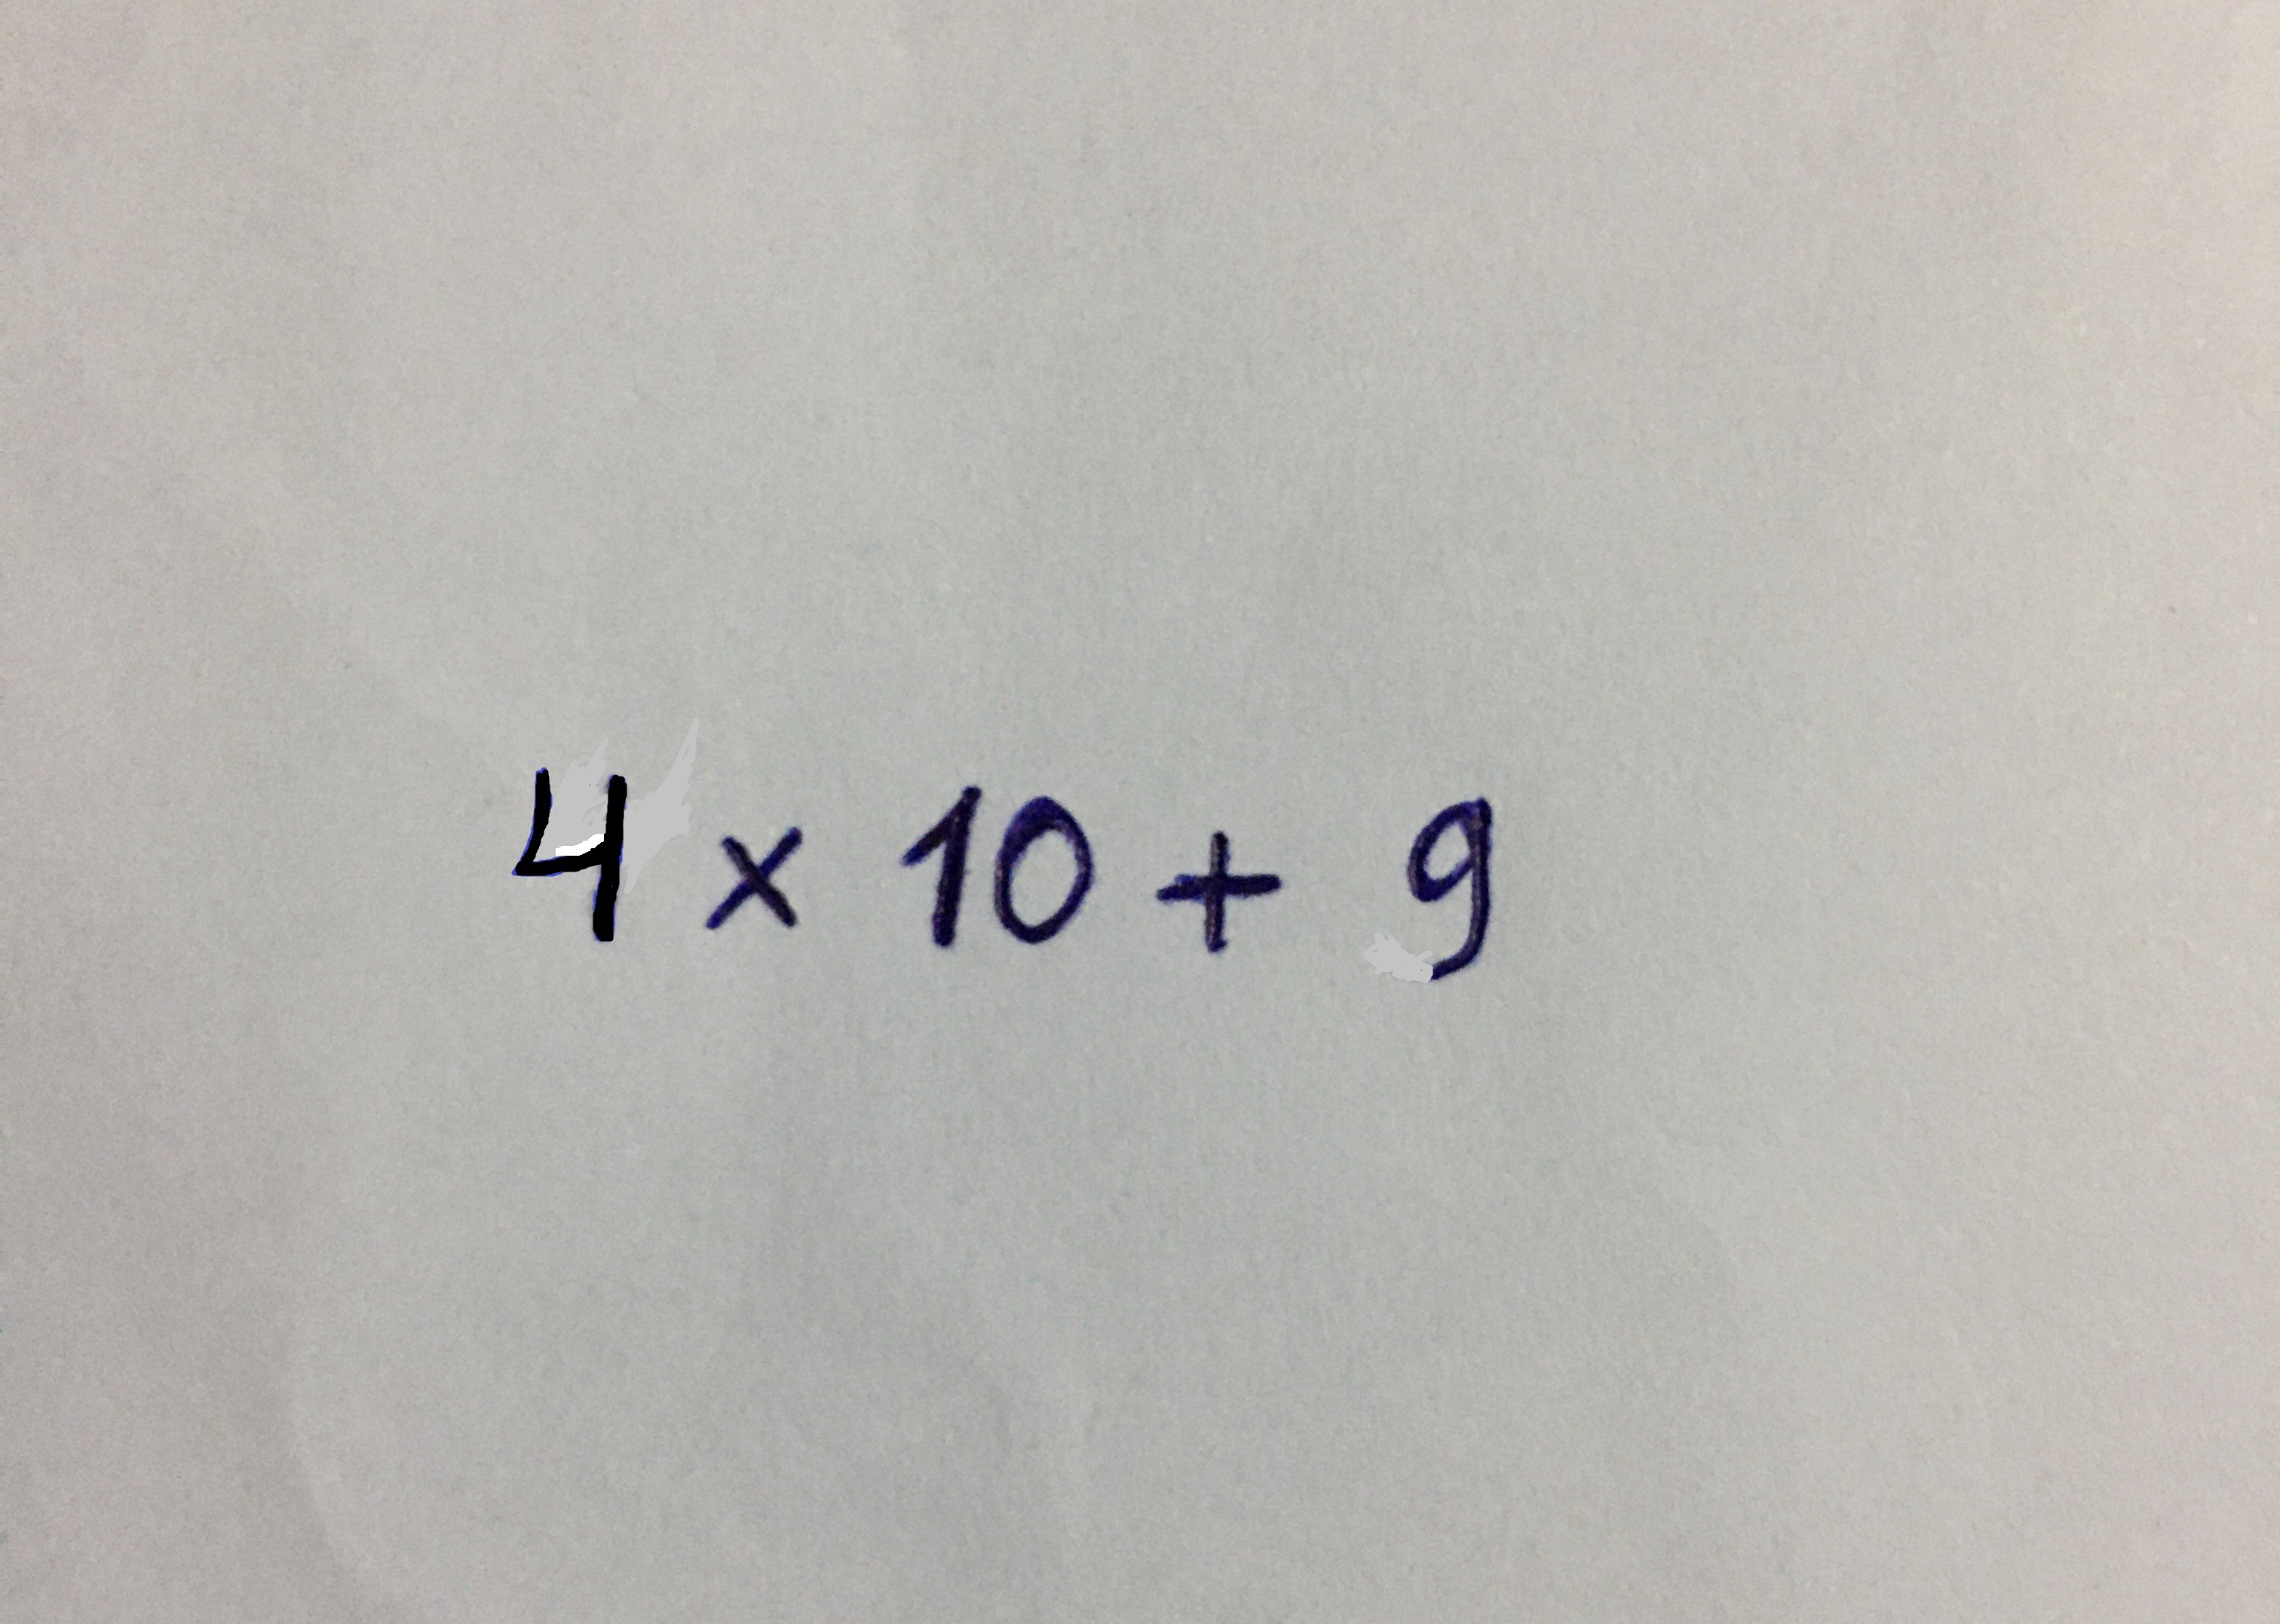 4 × 10 + 9